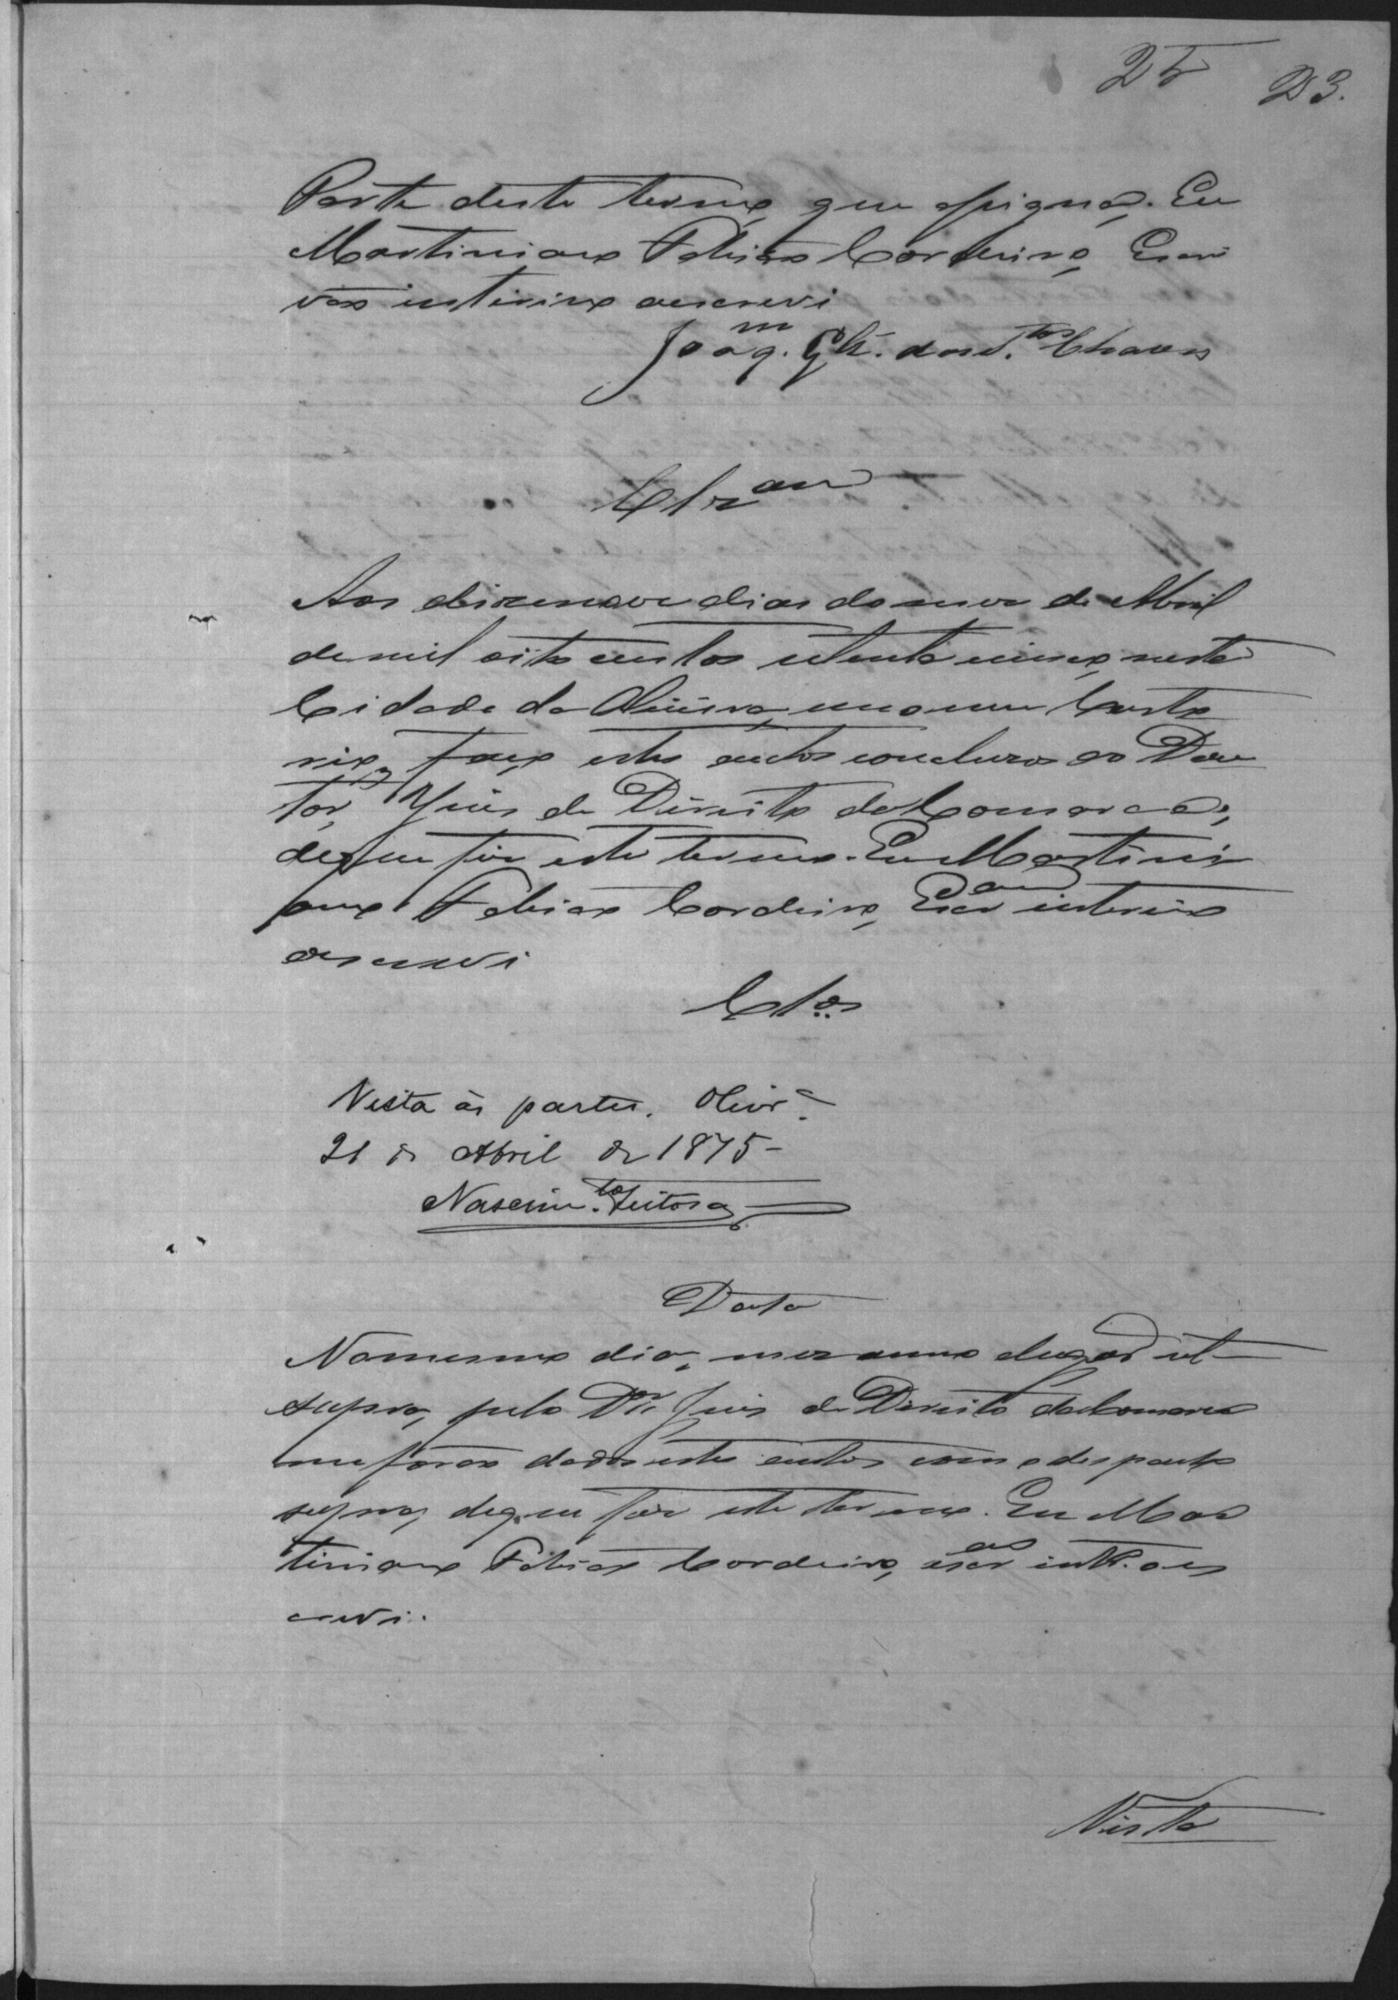 25 23.
Parte deste termo, que assigna. Eu
Martiniano Fabião Cordeiro, Escri
vão interino oescrevi
Joaq.m Glz. dos S.tos Chaves
Clzam
Aos dizenove dias do mez de Abril
de mil oito centos setenta cinco, nesta
Cidade da Oliveira, em o meu Carto
rio, faço estes autos concluzos ao Dou
tor Juis de Direito da Comarca;
de que fis este termo. Eu Martini
ano Fabião Cordeiro, Escram interino
oescrevi
Clos
Vista ás partes. Olivra.
21 de Abril de 1875-
Nascimto. Feitosa
Data
No mesmo dia, mez anno elugar ut
supra, pelo Dr. Juis de Direito da Comarca
me forão dados estes autos com o despacho
supra, deque fis este termo. Eu Mar
tiniano Fabião Cordeiro, escam intro. oes
crevi.
Vista